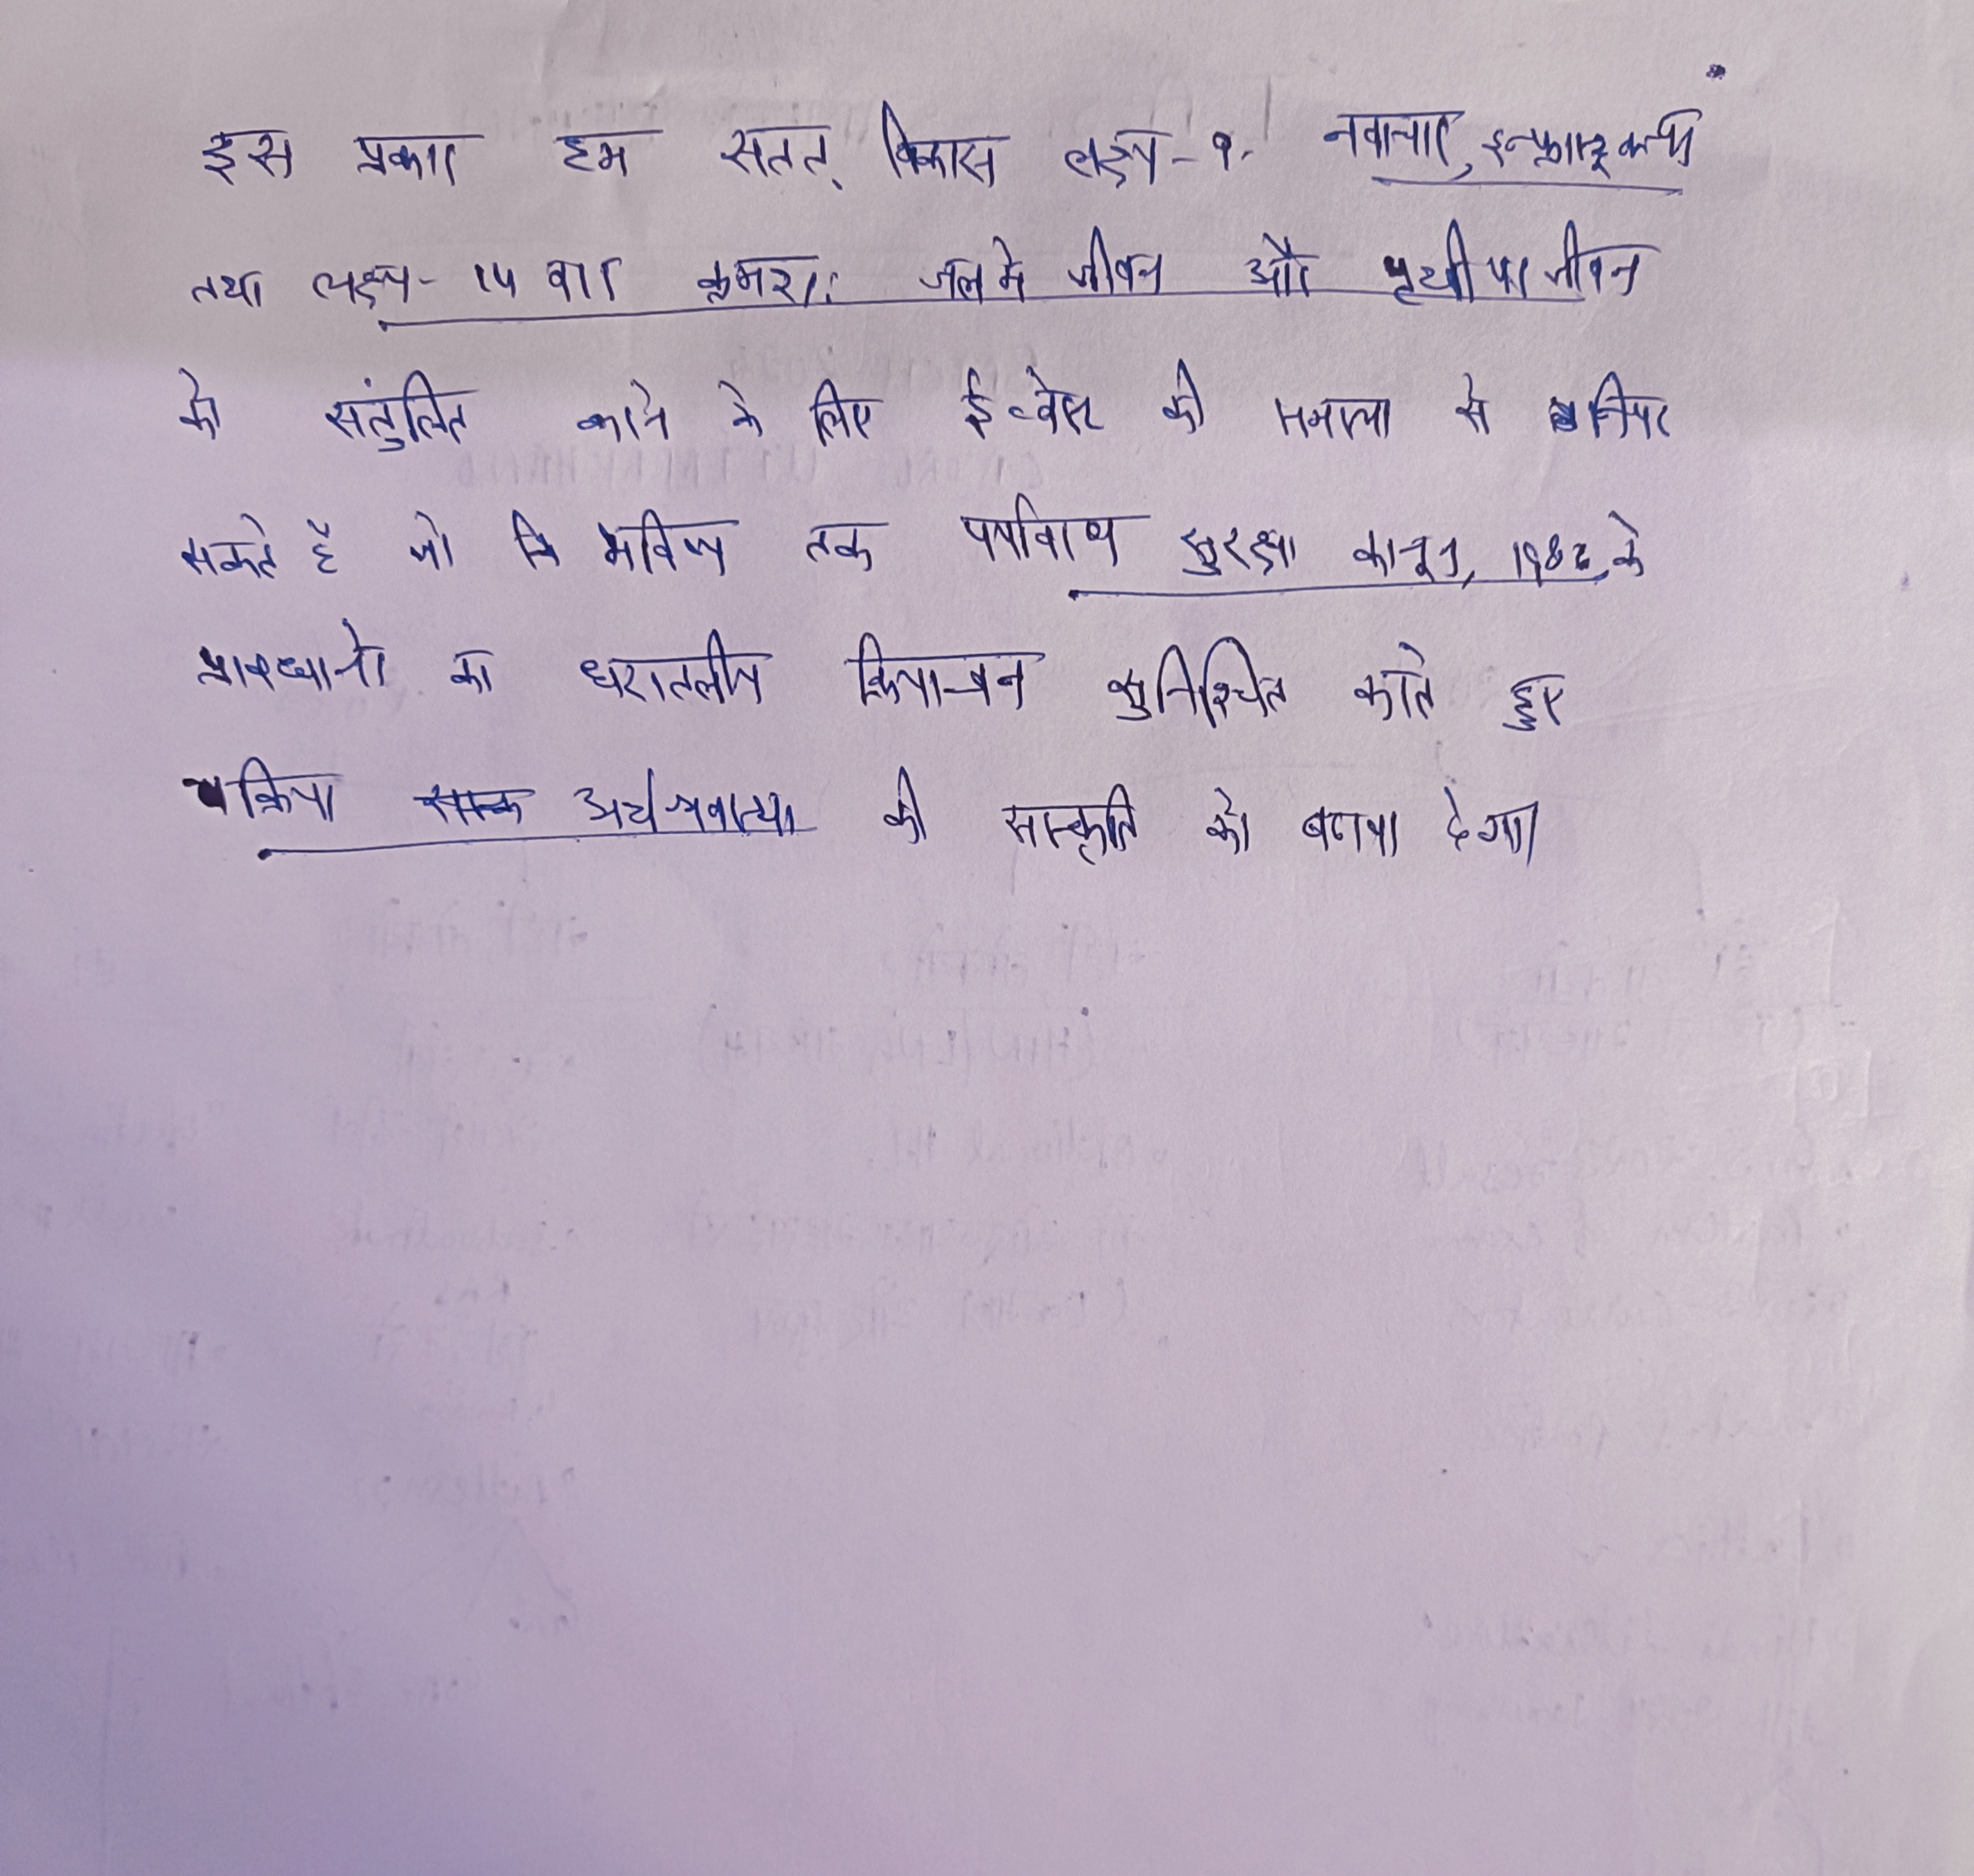 इस प्रकार हम सतत् विकास लक्ष्य-9. नवाचार, इन्फ्रास्ट्रक्चर
तथा लक्ष्य- 14 व क्रमशः जल मे जीवन और पृथ्वी पर जीवन
को संतुलित करने के लिए ई-वेस्ट की समस्या से निपट
सकते है जो कि भविष्य तक पर्यावरण सुरक्षा कानून, 1986 के
प्रावधानो का धरातलीय क्रियान्वन सुनिश्चित करते हुए
चक्रिया अर्थव्यवस्था की संस्कृति को बढावा देगा।